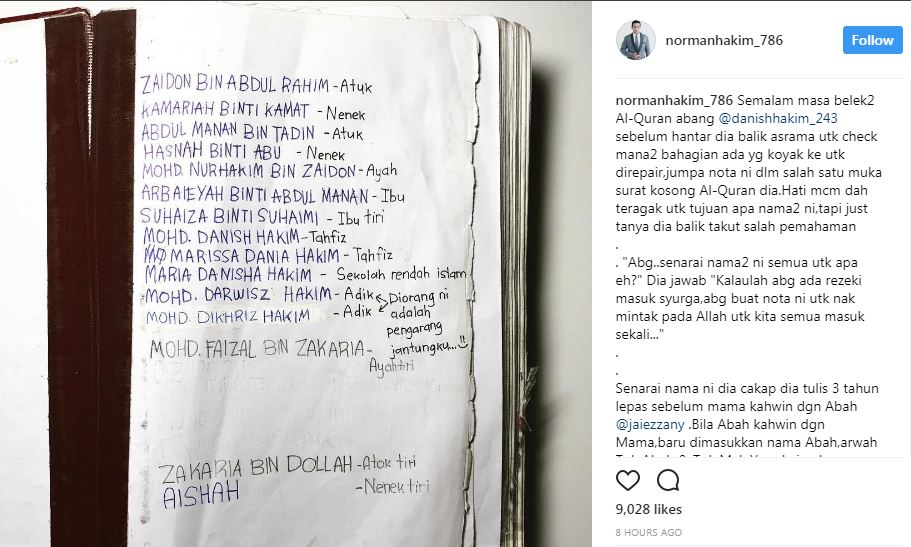 ZAIDON BIN ABDUL RAHIM - Atuk
KAMARIAH BINTI KAMAT - Nenek
ABDUL MANAN BIN TADIN - Atuk
HASNAH BINTI ABU - Nenek
MOHD. NURHAKIM BIN ZAIDON - Ayah
ARBAIEYAH BINTI ABDUL MANAN - Ibu
SUHAIZA BINTI SUHAIMI - Ibu tiri
MOHD. DANISH HAKIM - Tahfiz
MARISSA DANIA HAKIM - Tahfiz
MARIA DANISHA HAKIM - Sekolah rendah islam
MOHD. DARWISZ HAKIM - Adik
MOHD. DIKHRIZ HAKIM - Adik
Diorang ni
adalah
pengarang
jantungku...
MOHD. FAIZAL BIN ZAKARIA-
Ayah tiri
ZAKARIA BIN DOLLAH - Atok tiri
AISHAH - Nenek tiri
normanhakim_786
Follow
normanhakim_786 Semalam masa belek2
Al-Quran abang @danishhakim_243
sebelum hantar dia balik asrama utk check
mana2 bahagian ada yg koyak ke utk
direpair,jumpa nota ni dlm salah satu muka
surat kosong Al-Quran dia.Hati mcm dah
teragak utk tujuan apa nama2 ni,tapi just
tanya dia balik takut salah pemahaman
.
. "Abg..senarai nama2 ni semua utk apa
eh?" Dia jawab "Kalaulah abg ada rezeki
masuk syurga,abg buat nota ni utk nak
mintak pada Allah utk kita semua masuk
sekali..."
.
.
Senarai nama ni dia cakap dia tulis 3 tahun
lepas sebelum mama kahwin dgn Abah
@jaiezzany .Bila Abah kahwin dgn
Mama,baru dimasukkan nama Abah,arwah
9,028 likes
8 HOURS AGO